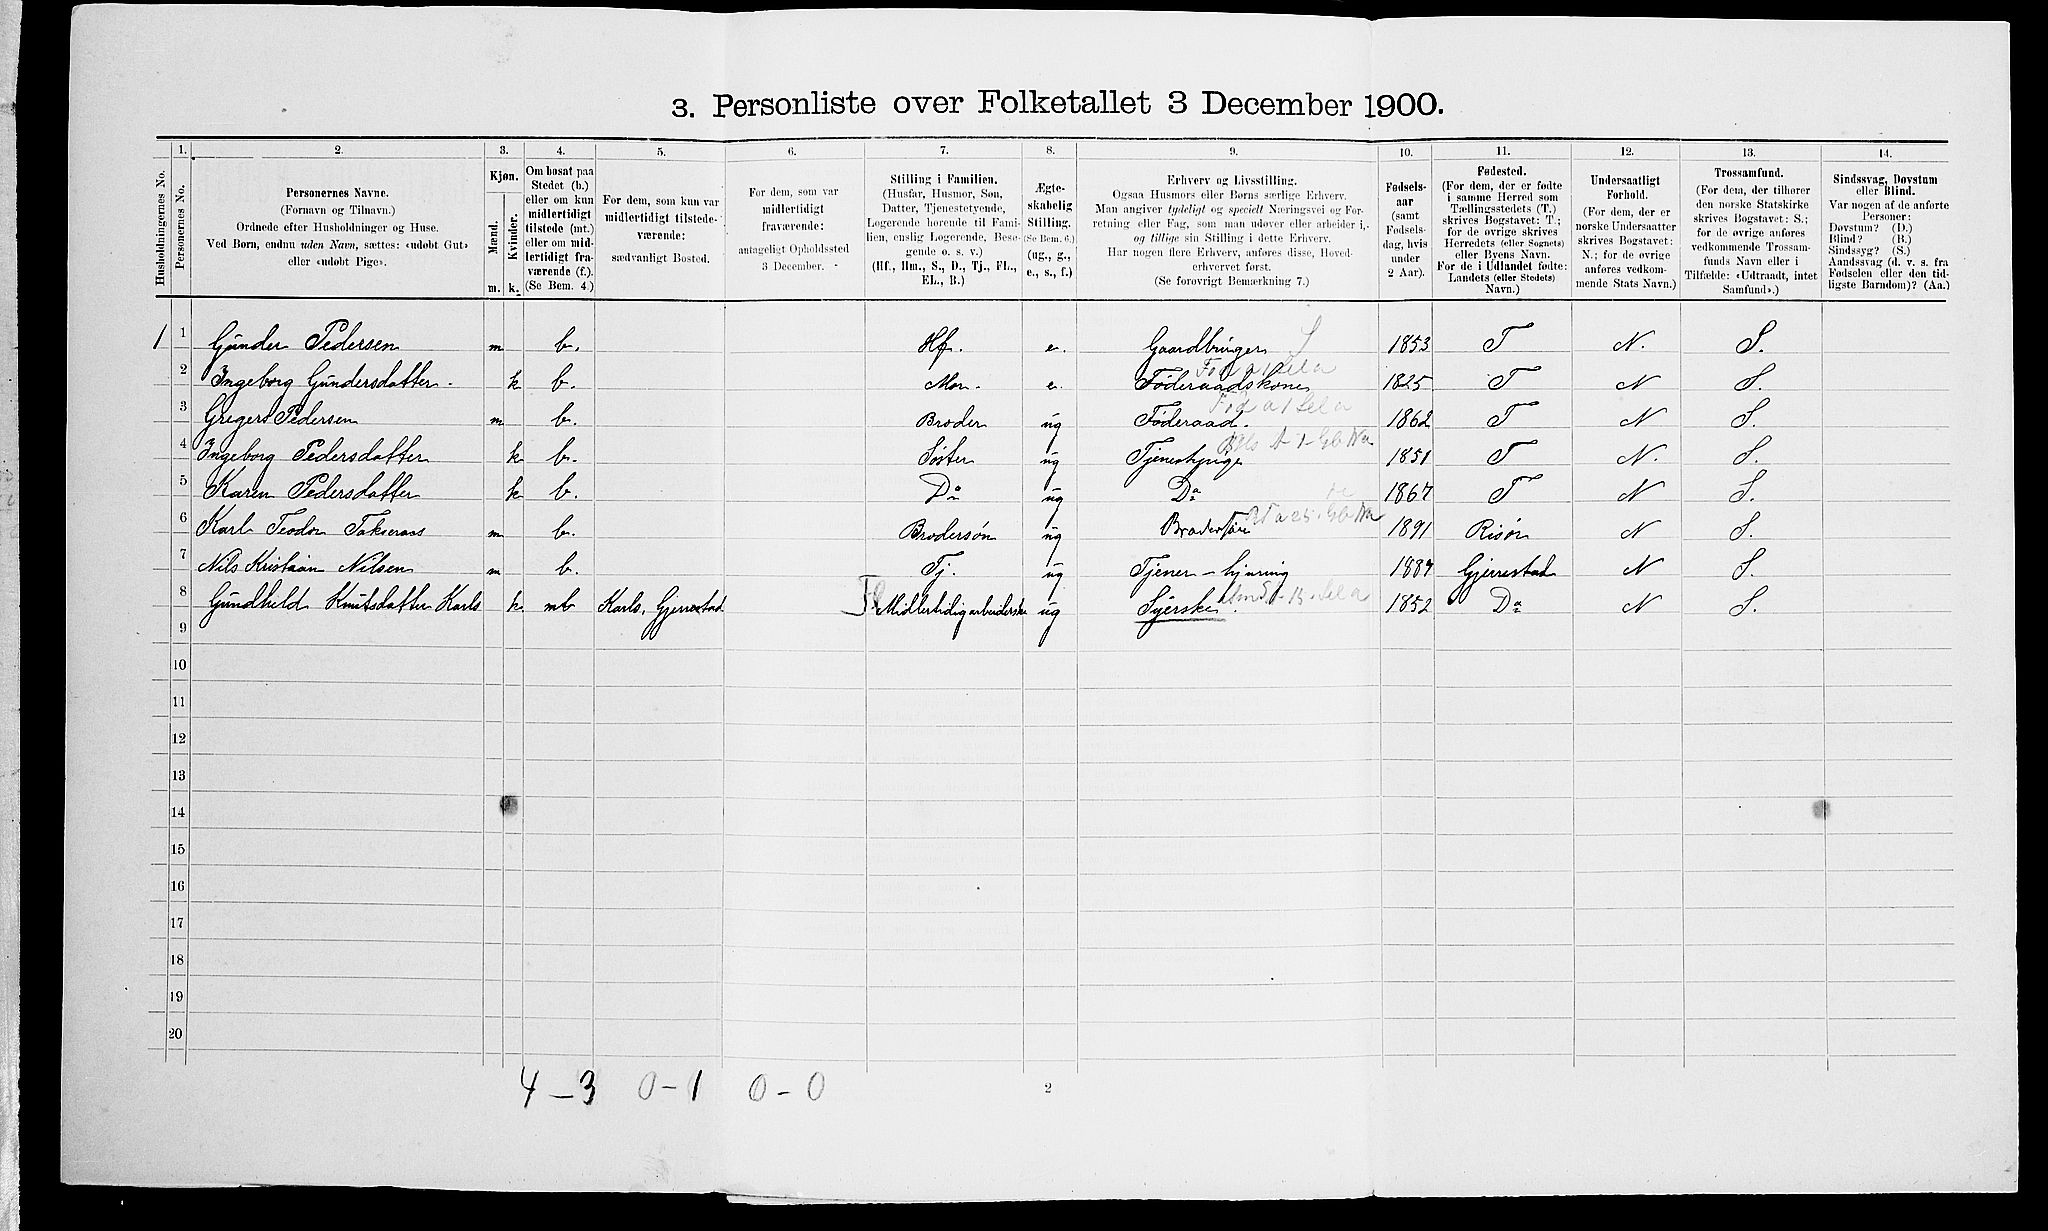 3. Personliste over Folketallet 3 December 1900.
1. 2. 3. 4. 5. 6. 7. 8. 9. 10. 11. 12. 13. 14.
Husholdningernes No.
Personernes No.
Personernes Navne.
(Fornavn og Tilnavn.)
Ordnede efter Husholdninger og Huse.
Ved Børn, endnu uden Navn, sættes: «udøbt Gut»
eller «udøbt Pige».
Kjøn.
Mænd.
Kvinder.
m. k.
Om bosat paa
Stedet (b.)
eller om kun
midlertidigt
tilstede (mt.)
eller om mid-
lertidigt fra-
værende (f.).
(Se Bem. 4.)
For dem, som kun var
midlertidigt tilstede-
værende:
sædvanligt Bosted.
For dem, som var
midlertidigt
fraværende:
antageligt Opholdssted
3 December.
Stilling i Familien.
(Husfar, Husmor, Søn,
Datter, Tjenestetyende,
Logerende hørende til Fami-
lien, enslig Logerende, Besø-
gende o. s. v.)
(Hf., Hm., S., D., Tj., FL.,
EL., B.)
Ægte-
skabelig
Stilling.
(Se Bem. 6.)
(ug., g.,
e., s., f.)
Erhverv og Livsstilling.
Ogsaa Husmors eller Børns særlige Erhverv.
Man angiver tydeligt og specielt Næringsvei og For-
retning eller Fag, som man udøver eller arbeider i,
og tillige sin Stilling i dette Erhverv.
Har nogen flere Erhverv, anføres disse, Hoved-
erhvervet først.
(Se forøvrigt Bemærkning 7.)
Fødsels-
aar
(samt
Fødsels-
dag, hvis
under
2 Aar).
Fødested.
(For dem, der er fødte
i samme Herred som
Tællingsstedets (T.)
skrives Bogstavet: T.;
for de øvrige skrives
Herredets (eller Sognets)
eller Byens Navn.
For de i Udlandet fødte:
Landets (eller Stedets)
Navn.)
Undersaatligt
Forhold.
(For dem, der er
norske Undersaatter
skrives Bogstavet:
N.; for de øvrige
anføres vedkom-
mende Stats Navn.)
Trossamfund.
(For dem, der tilhører
den norske Statskirke
skrives Bogstavet: S.;
for de øvrige anføres
vedkommende Trossam-
funds Navn eller i
Tilfælde: «Udtraadt, intet
Samfund».)
Sindssvag, Døvstum
eller Blind.
Var nogen af de anførte
Personer:
Døvstum? (D.)
Blind? (B.)
Sindssyg? (S.)
Aandssvag (d. v. s. fra
Fødselen eller den tid-
ligste Barndom)? (Aa.)
1 1 Gunder Pedersen m b. Hf. e. Gaardbruger 1853 T N. S.
2 Ingeborg Gundersdatter. k b. Mor. e. Føderaadskone 1825 T N S.
3 Gregers Pedersen m b. Broder ug Føderaad. 1862 T N S.
4 Ingeborg Pedersdatter k b. Søster ug Tjenestpige 1851 T N. S.
5 Karen Pedersdatter k b. Do ug Do 1867 T N S.
6 Karl Teodor m b. Brodersøn ug Brodersøn 1891 Risør N S.
7 Nils Kristian Nilsen m b. Tj. ug Tjener - hjuring 1887 Gjerrestad N S.
8 Gundhild Knutsdatter Karls k mt Karls, Gjerrestad Fl Midlertidig arbeiderske ug Syerske 1852 Do N S.
9
10
11
12
13
14
15
16
17
18
19
20
4-3 0-1 0-0
2